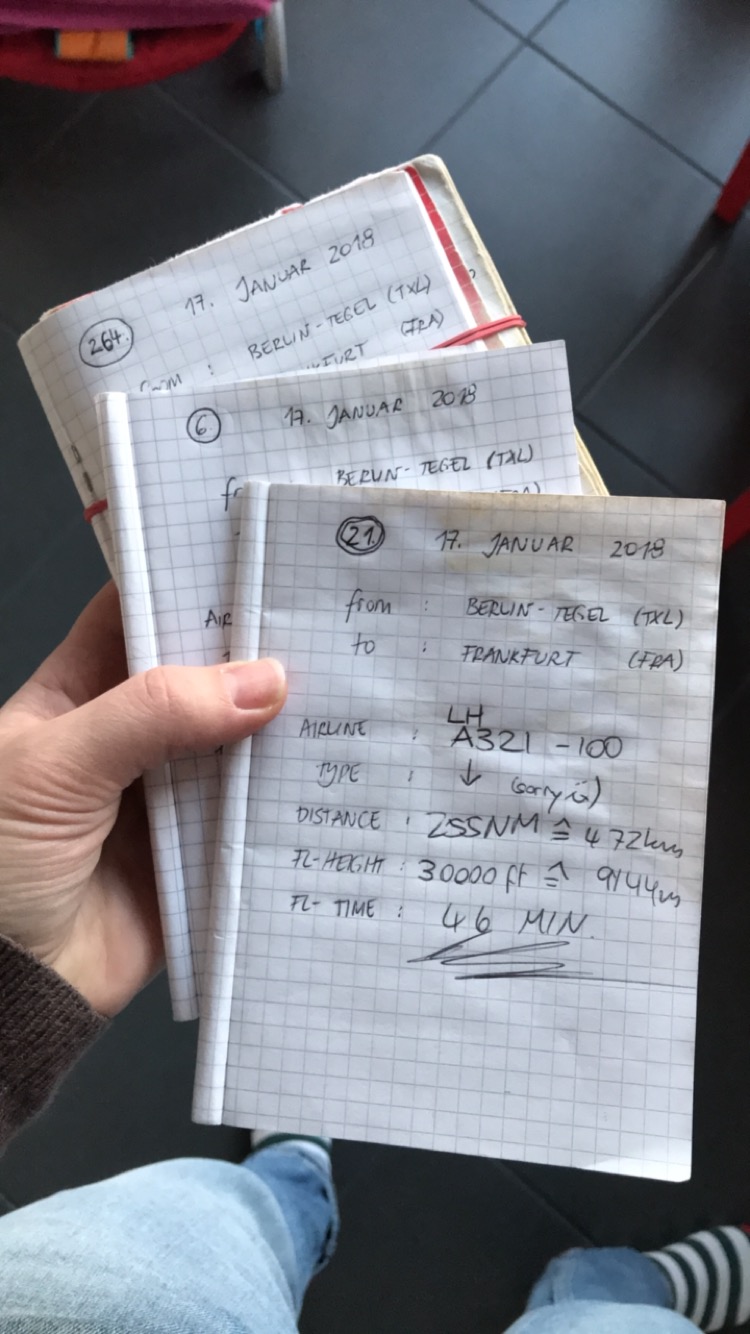 264. 17. JANUAR 2018
from : BERLIN-TEGEL (TXL)
(FRA)
6. 17. JANUAR 2018
BERLIN-TEGEL (TXL)
21. 17. JANUAR 2018
from : BERLIN-TEGEL (TXL)
to : FRANKFURT (FRA)
AIRLINE : LH
A321-100
TYPE : ↓ (sorry ü)
DISTANCE : 255NM ≙ 472km
FL-HEIGHT : 30000 ft ≙ 9144m
FL-TIME : 46 MIN.